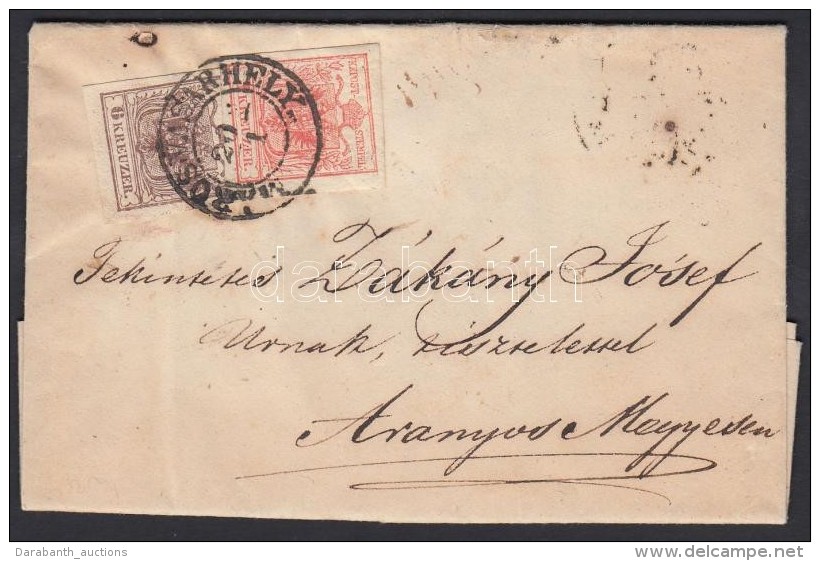 6 KREUZER.
KREUZER.
STEMPEL
VÁSÁRHELY
20
1
Tekintetes Zákány Jósef
Urnak, tisztelettel
Aranyos Meggyesen
darabanth
Darabanth_auctions
www.delcampe.net